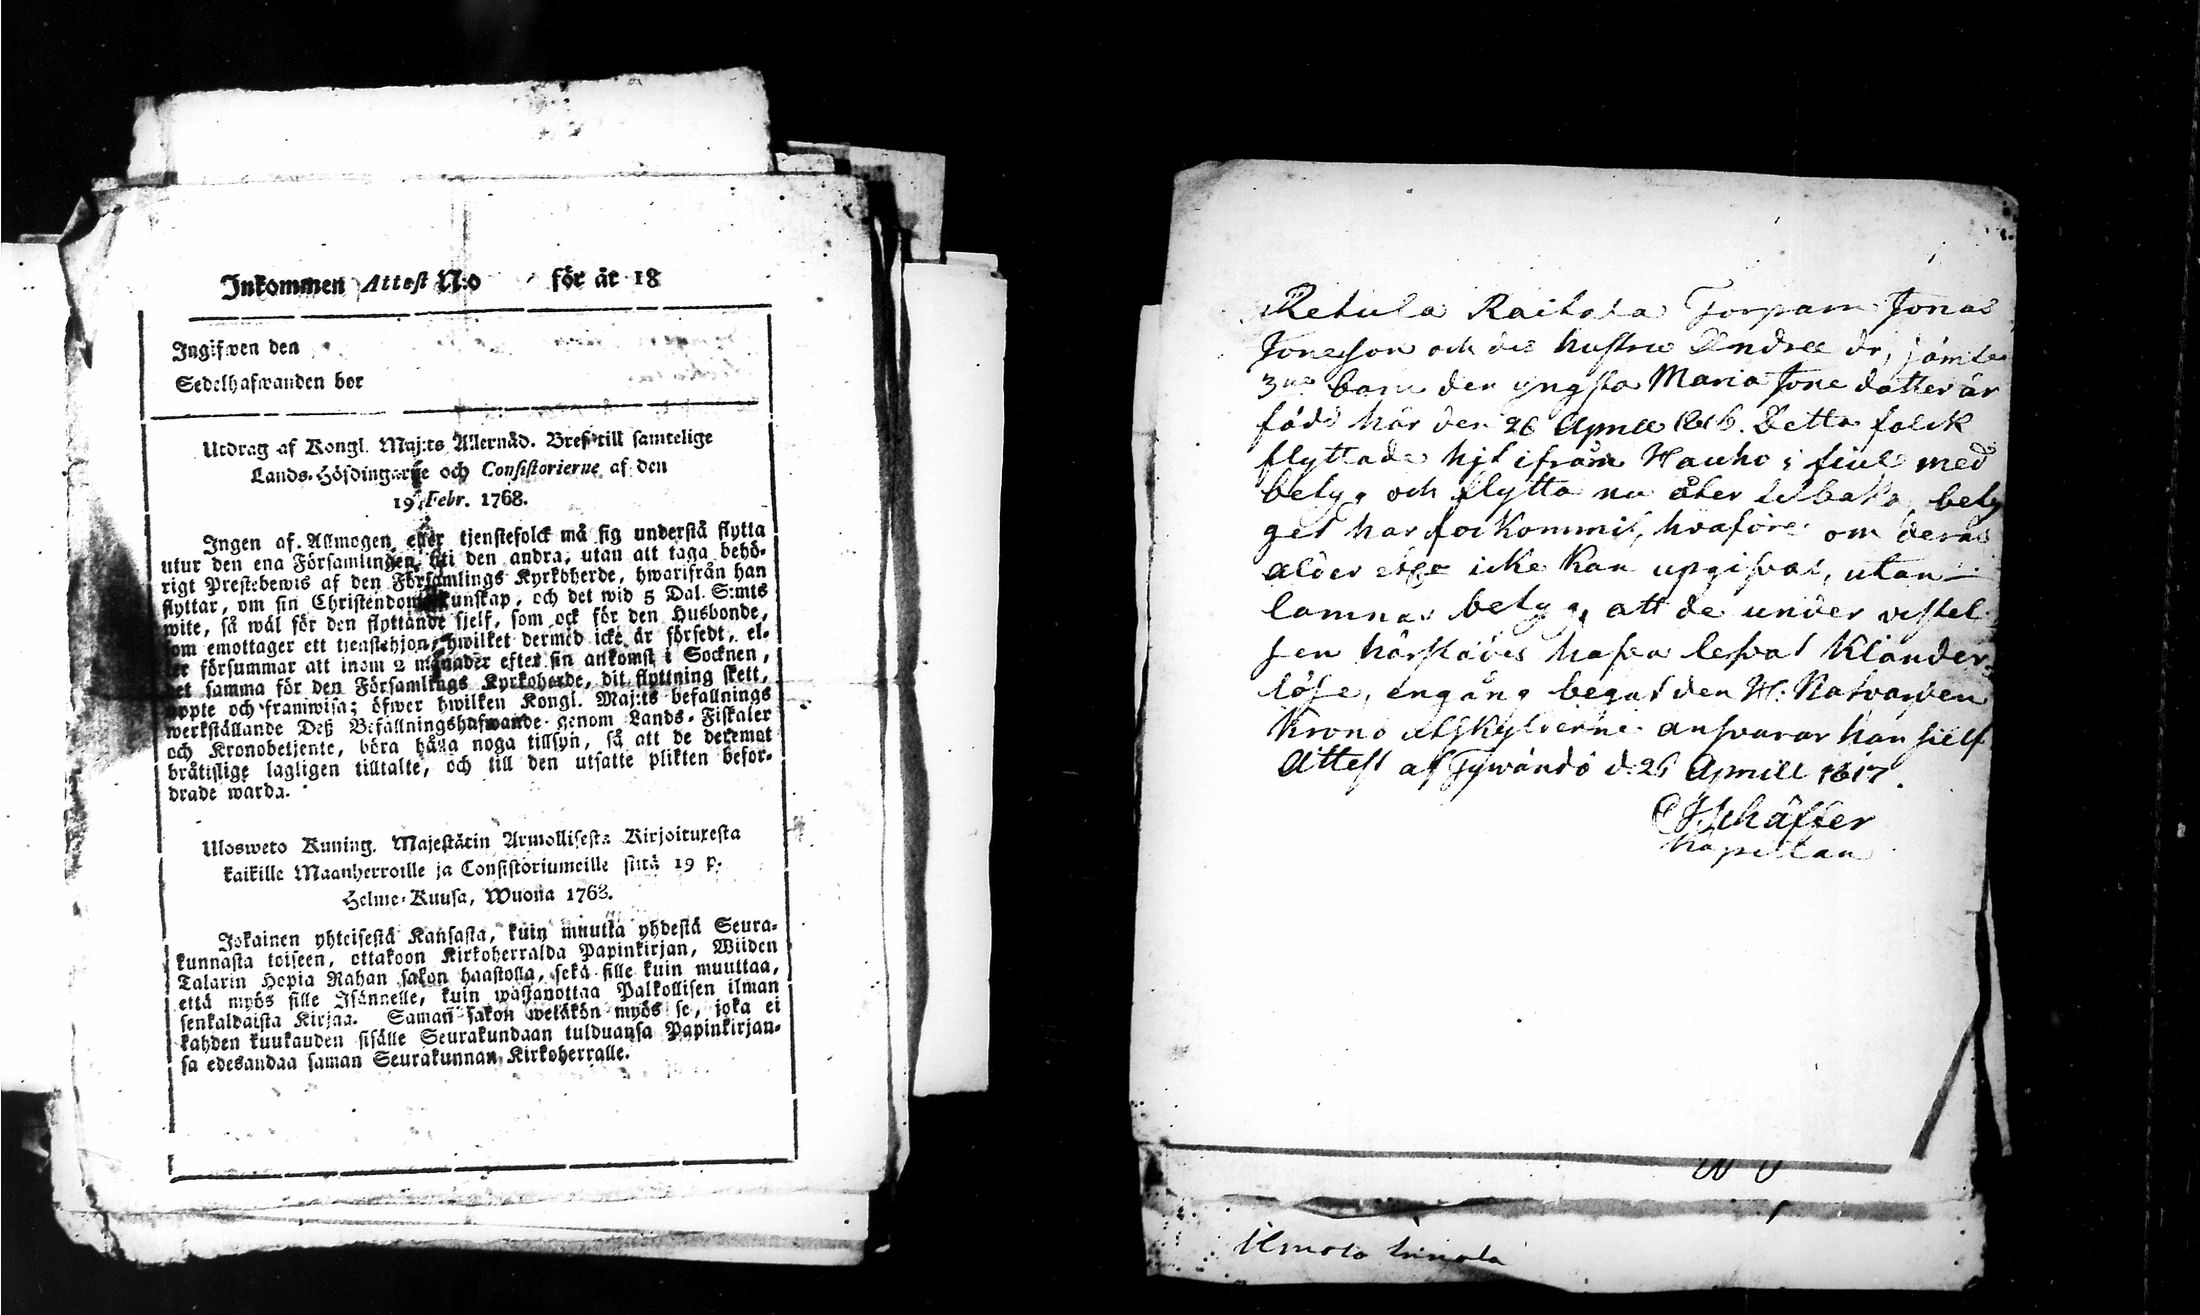 Inkommen Attest N:o för år 18
Ingifwen den
Sedelhafwanden bor
Utdrag af Kongl. Maj:ts Allernåd. Bref till samtelige
Lands-Höfdingarne och Consistorierne af den
19 Febr. 1768.
Ingen af Allmogen eller tjenstefolck må sig understå flytta
utur den ena Församlingen till den andra, utan att taga behö-
rigt Prestebewis af den Församlings Kyrkoherde, hwarifrån han
flyttar, om sin Christendoms kunskap, och det wid 5 Dal. S:mts
wite, så wäl för den flyttande sjelf, som ock för den Husbonde,
som emottager ett tienstehjon, hwilket dermed icke är försedt, el-
ler försummar att inom 2 månader efter sin ankomst i Socknen,
det samma för den Församlings Kyrkoherde, dit flyttning skett,
uppte och framwisa; öfwer hwilken Kongl. Maj:ts befallnings
werkställande Deß Befallningshafwande genom Lands-Fiskaler
och Kronobetjente, böra hålla noga tillsyn, så att de deremot
bråtislige lagligen tilltalte, och till den utsatte plikten befor-
drade warda.
Ulosweto Kuning. Majestätin Armollisesta Kirjoituxesta
kaikille Maanherroille ja Consistoriumeille siitä 19 p.
Helme-Kuusa, Wuona 1768.
Jokainen yhteisestä Kansasta, kuin muutta yhdestä Seura-
kunnasta toiseen, ottakoon Kirkoherralda Papinkirjan, Wiiden
Talarin Hopia Rahan sakon haastolla, sekä sille kuin muuttaa,
että myös sille Isännelle, kuin wastanottaa Palkollisen ilman
senkaldaista Kirjaa. Saman sakon wetäkön myös se, joka ei
kahden kuukauden sisälle Seurakundaan tulduansa Papinkirjan-
sa edesandaa saman Seurakunnan Kirkoherralle.
Retula Raitala Torpare Jonas
Joneson och des hustru Andree dr, jämte
3ne barn den yngsta Maria Jone dotter är
född här den 26 Aprill 1816. Detta folck
flyttade hjt ifrån Hauho; med
betyg och flytta nu åter tilbaka, bety
get har forkommit, hvaföre om deras
alder icke kan upgifvas, utan
lamnas betyg, att de under vistel
sen härstädes hafva lefvat klander
löse, engång begat den H. Natvarden
Krono utskylderne ansvarar han sielf
Attest af Tywändö d. 26 Aprill 1817.
Schäffer
Kapellan